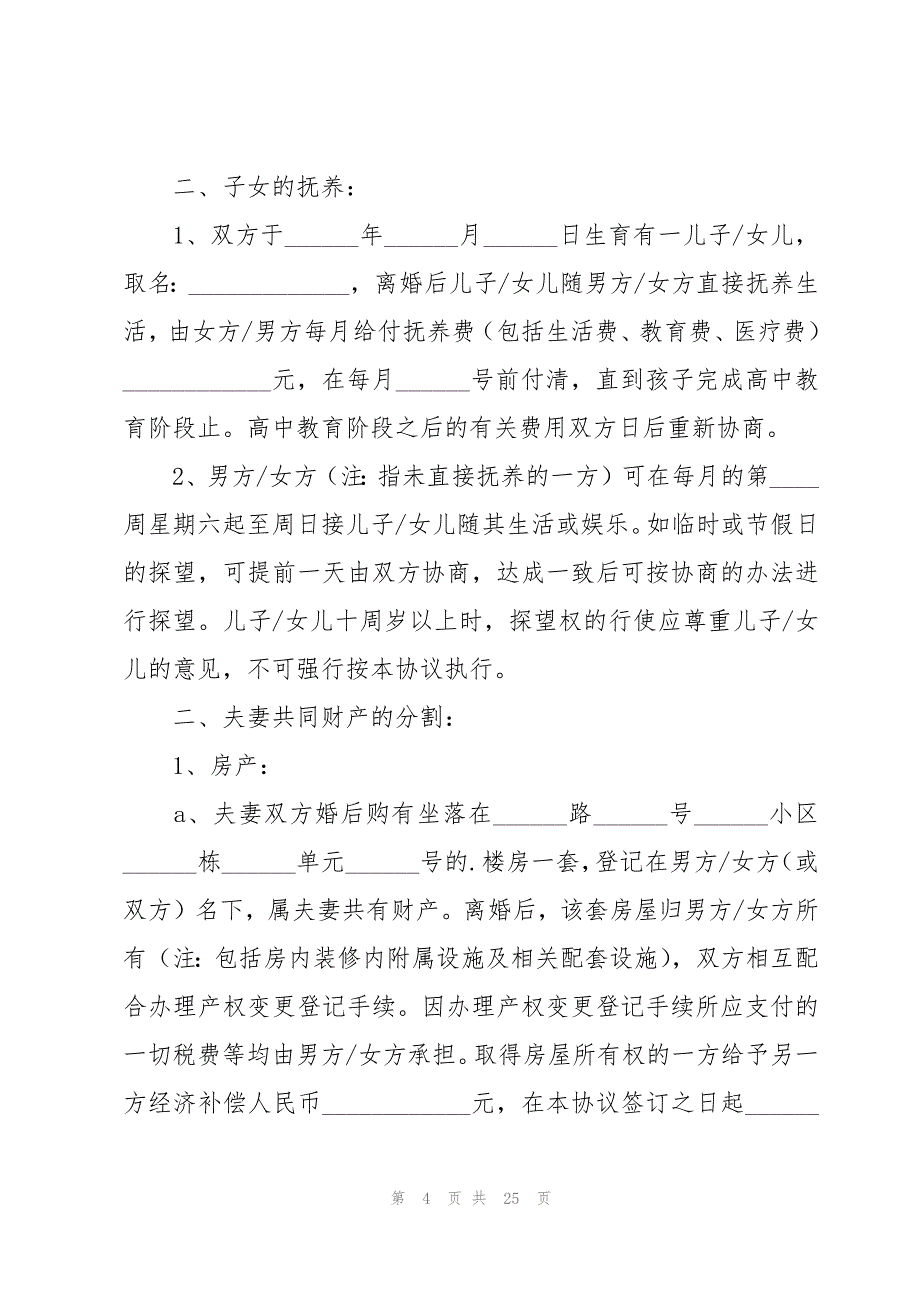 二、子女的抚养：
1、双方于______年______月______日生育有一儿子/女儿，
取名：_____________，离婚后儿子/女儿随男方/女方直接抚养生
活，由女方/男方每月给付抚养费（包括生活费、教育费、医疗费）
____________元，在每月______号前付清，直到孩子完成高中教
育阶段止。高中教育阶段之后的有关费用双方日后重新协商。
2、男方/女方（注：指未直接抚养的一方）可在每月的第____
周星期六起至周日接儿子/女儿随其生活或娱乐。如临时或节假日
的探望，可提前一天由双方协商，达成一致后可按协商的办法进
行探望。儿子/女儿十周岁以上时，探望权的行使应尊重儿子/女
儿的意见，不可强行按本协议执行。
二、夫妻共同财产的分割：
1、房产：
a、夫妻双方婚后购有坐落在______路______号______小区
______栋______单元______号的.楼房一套，登记在男方/女方（或
双方）名下，属夫妻共有财产。离婚后，该套房屋归男方/女方所
有（注：包括房内装修内附属设施及相关配套设施），双方相互配
合办理产权变更登记手续。因办理产权变更登记手续所应支付的
一切税费等均由男方/女方承担。取得房屋所有权的一方给予另一
方经济补偿人民币____________元，在本协议签订之日起______
第 4 页 共 25 页